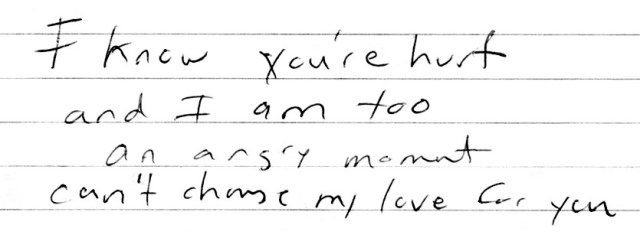 I know you're hurt
and I am too
an angry moment
can't change my love for you